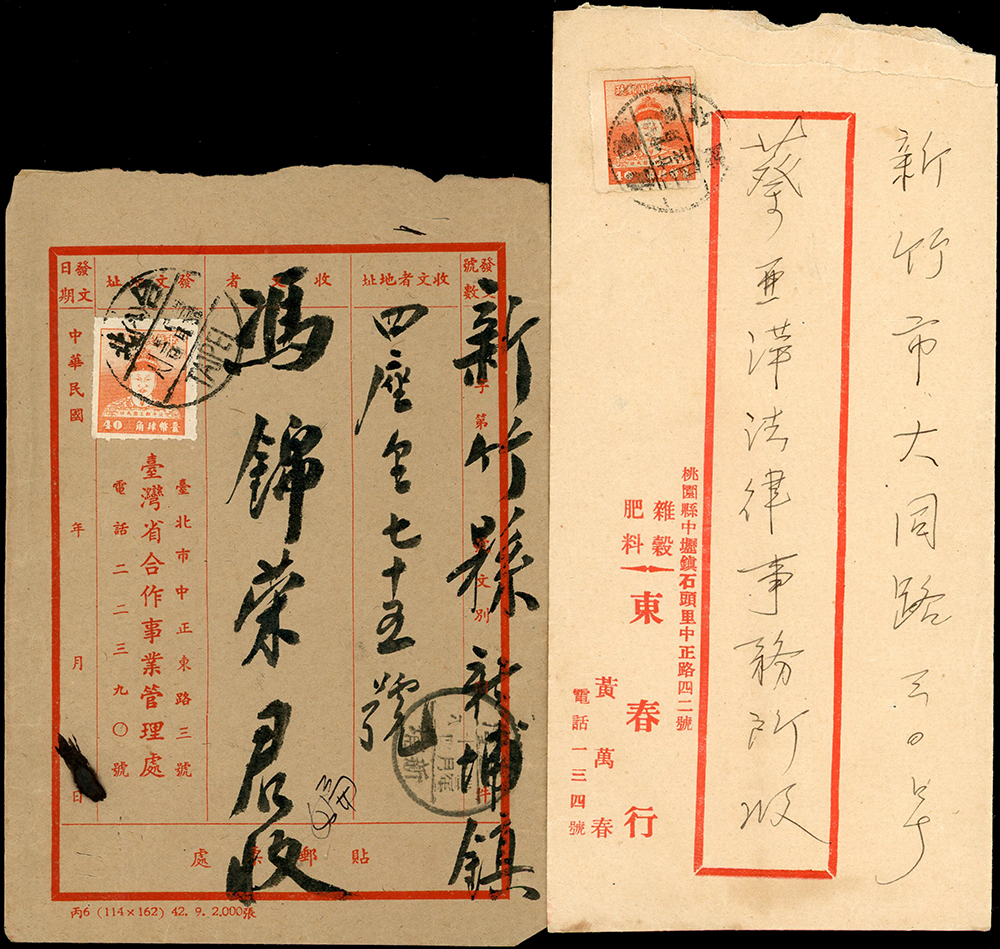 發文日期
發文者地址
收文者
收文者地址
發文號數
中華民國
年
月
日
字第
文別
件
新竹縣新埔鎮
四座里七十五號
馮錦榮君收
臺北市中正東路三號
臺灣省合作事業管理處
電話二二三九〇號
貼郵票處
丙6 (114×162) 42. 9. 2.000張
台北
TAIPEI
臺幣肆角
40
新埔
新竹市大同路
蔡亜萍法律事務所收
桃園縣中壢鎮石頭里中正路四二號
雜穀
肥料
東春行
黃萬春
電話一三四號
40